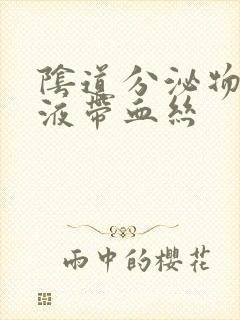 陰道分泌物
液帶血絲
雨中的櫻花